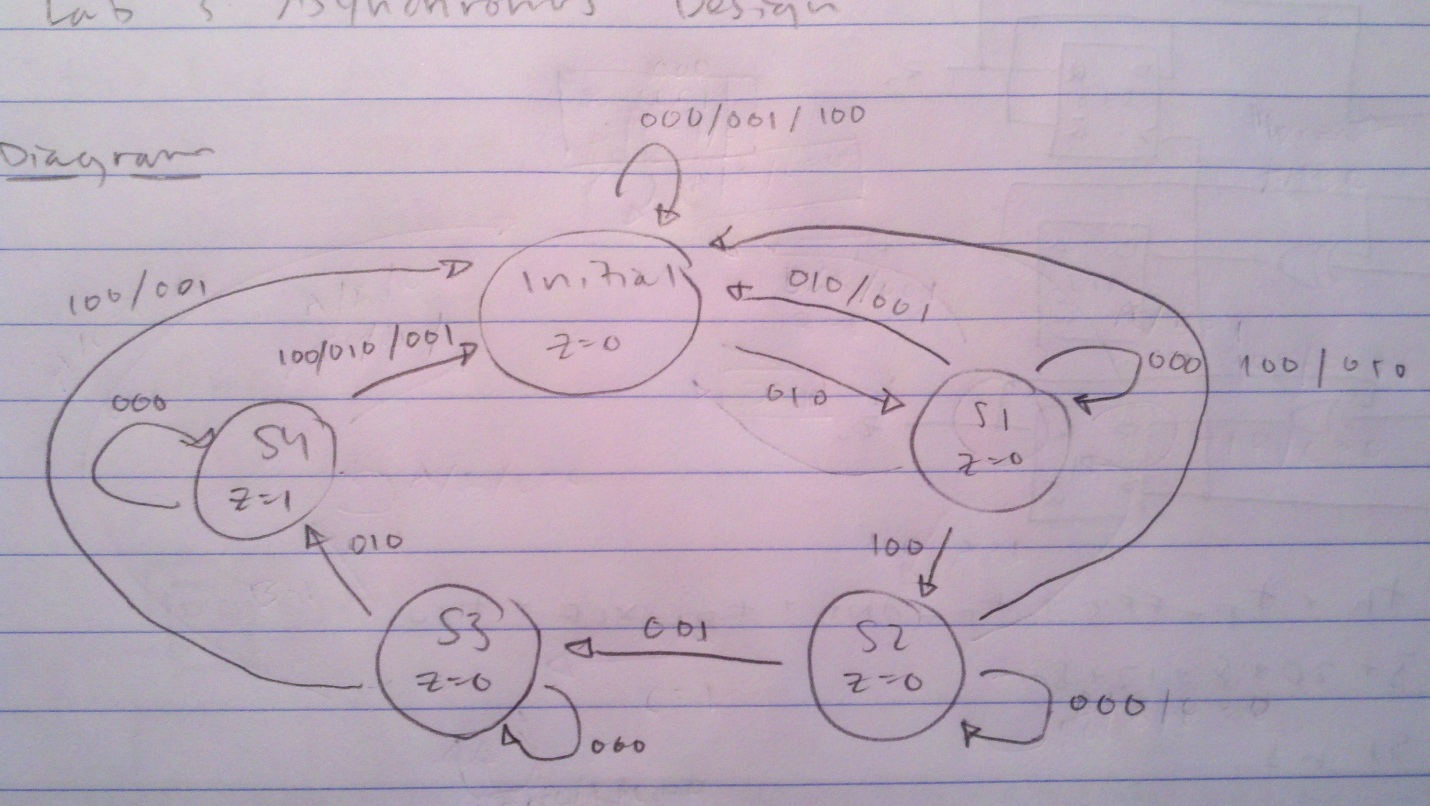 Lab 3 Asynchronus Design
Diagram
000/001/100
Initial
z=0
100/001
100/010/001
010/001
010
000
100/010
000
S4
z=1
S1
z=0
010
100/
S3
z=0
001
S2
z=0
000
000